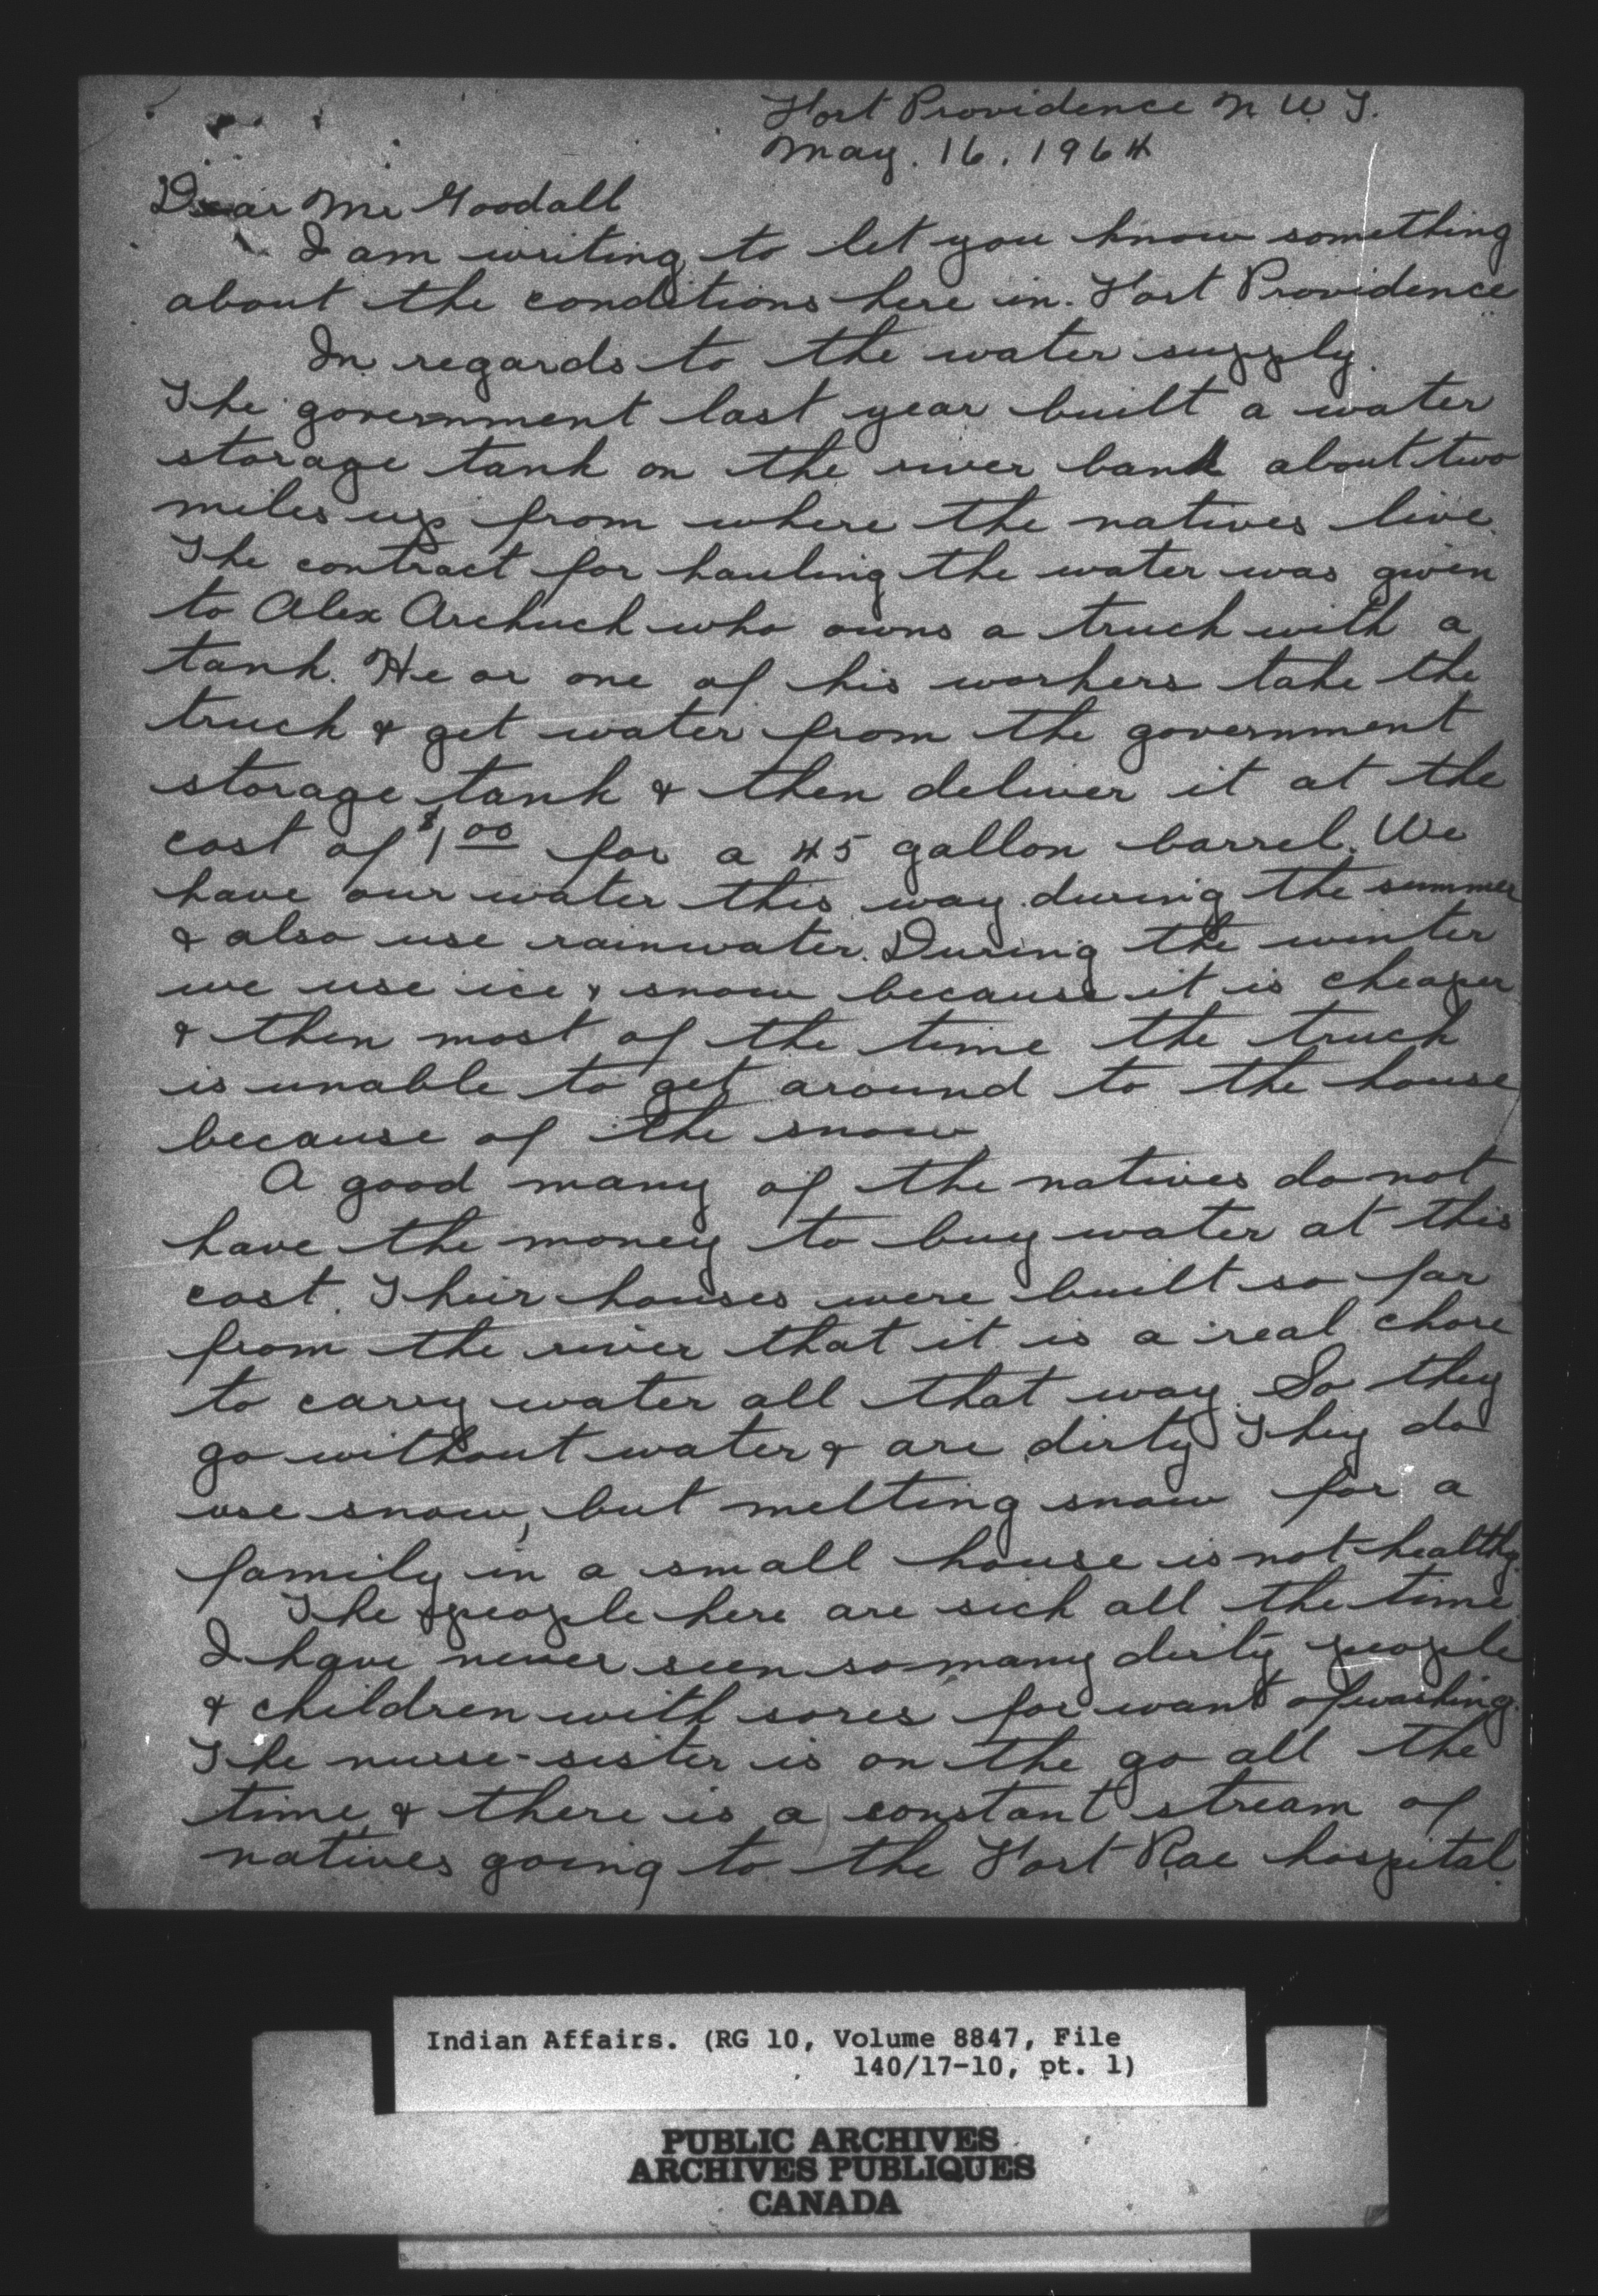 Fort Providence N.W.T.
May. 16, 1964
Dear Mr Goodall
I am writing to let you know something
about the conditions here in Fort Providence
In regards to the water supply.
The government last year built a water
storage tank on the river bank about two
miles up from where the natives live.
The contract for hauling the water was given
to Alex Archuck who owns a truck with a
tank. He or one of his workers take the
truck & get water from the government
storage tank & then deliver it at the
cost of $1.00 for a 45 gallon barrel. We
have our water this way during the summer
& also use rainwater. During the winter
we use ice & snow because it is cheaper
& then most of the time the truck
is unable to get around to the house
because of the snow.
A good many of the natives do not
have the money to buy water at this
cost. Their houses were built so far
from the river that it is a real chore
to carry water all that way. So they
go without water & are dirty. They do
use snow, but melting snow for a
family in a small house is not healthy.
The people here are sick all the time.
I have never seen so many dirty people
& children with sores for want of washing.
The nurse-sister is on the go all the
time, & there is a constant stream of
natives going to the Fort Rae hospital.
Indian Affairs. (RG 10, Volume 8847, File
140/17-10, pt. 1)
PUBLIC ARCHIVES
ARCHIVES PUBLIQUES
CANADA